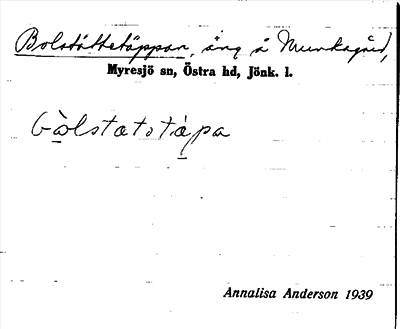 Bolstättetäppan, äng å Munkagård,
Myresjö sn, Östra hd, Jönk. l.
bòlstatotápa
Annalisa Anderson 1939